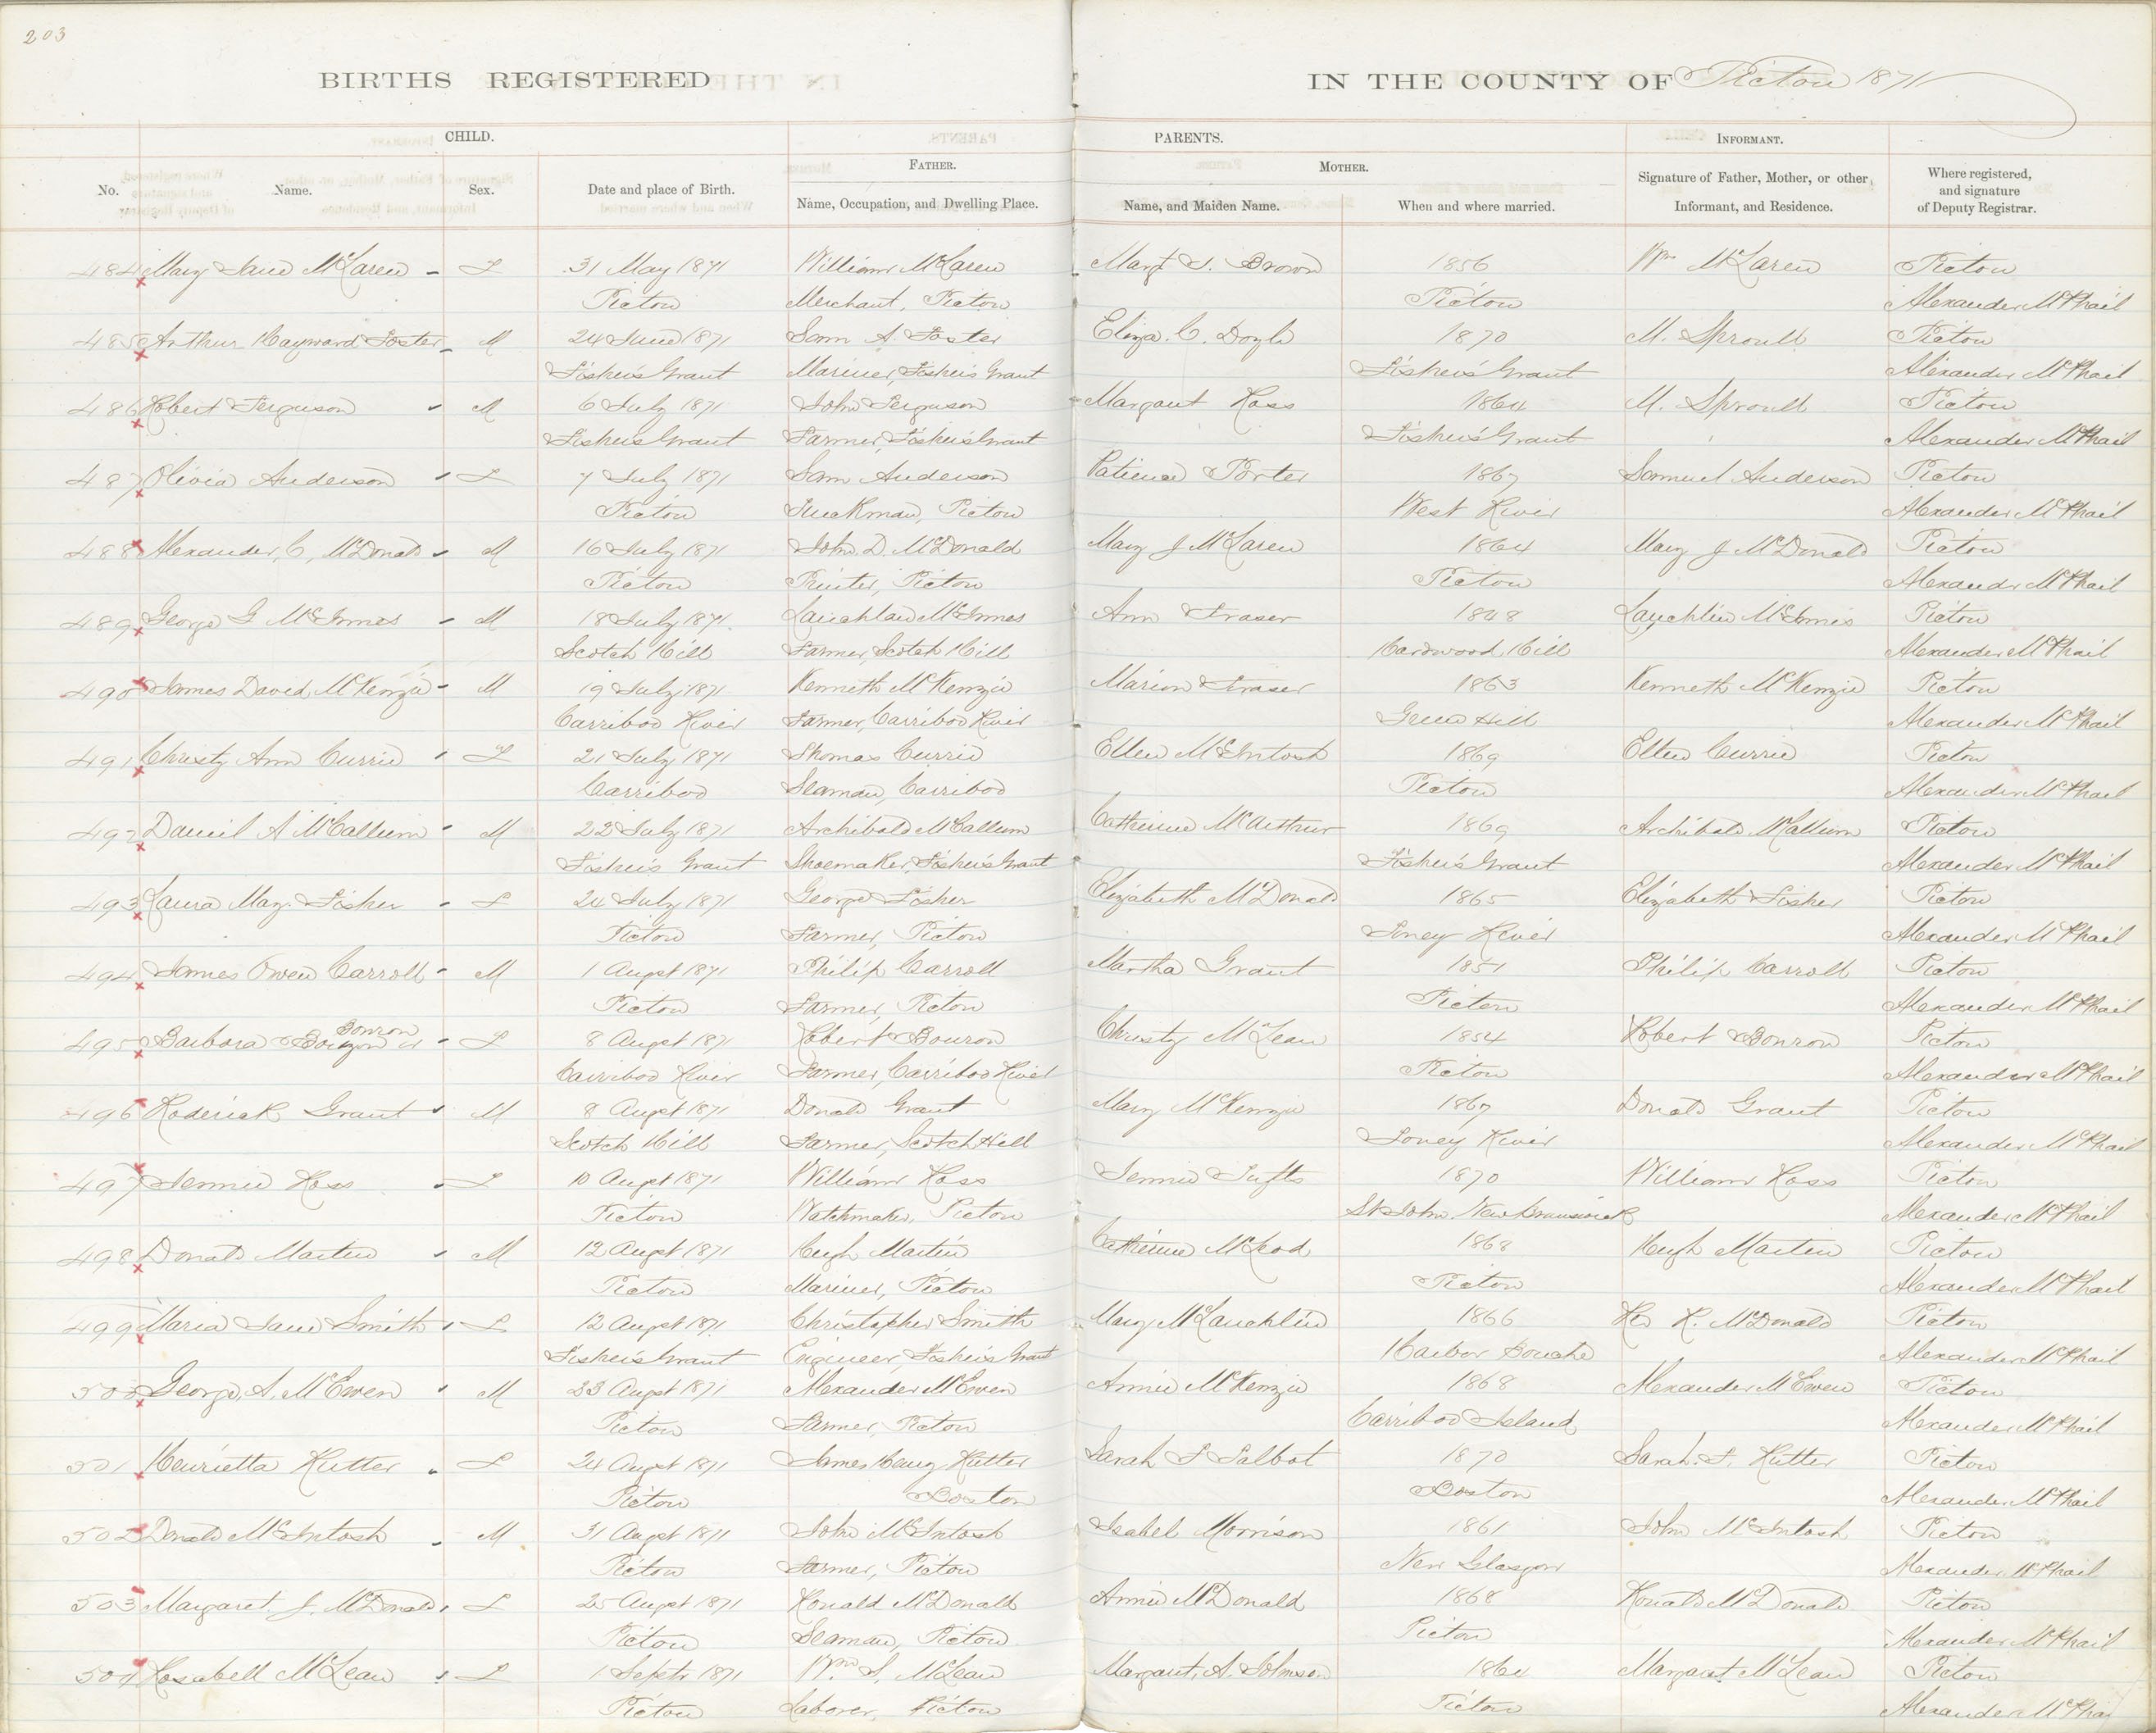 203
BIRTHS REGISTERED IN THE COUNTY OF Pictou 1871
CHILD. PARENTS. INFORMANT.
FATHER. MOTHER.
No. Name. Sex. Date and place of Birth. Name, Occupation, and Dwelling Place. Name, and Maiden Name. When and where married. Signature of Father, Mother, or other Informant, and Residence. Where registered, and signature of Deputy Registrar.
484 Mary Jane McLaren - F 31 May 1871 William McLaren Margt S. Brown 1856 Wm McLaren Pictou
Pictou Merchant, Pictou Pictou Alexander McPhail
485 Arthur Hayward Foster - M 24 June 1871 Sam A. Foster Eliza. C. Doyle 1870 M. Sproull Pictou
Fisher's Grant Mariner, Fisher's Grant Fisher's Grant Alexander McPhail
486 Robert Ferguson - M 6 July 1871 John Ferguson Margaret Ross 1864 M. Sproull Pictou
Fisher's Grant Farmer, Fisher's Grant Fisher's Grant Alexander McPhail
487 Olivia Anderson - F 7 July 1871 Sam Anderson Patience Porter 1867 Samuel Anderson Pictou
Pictou Truckman, Pictou West River Alexander McPhail
488 Alexander, C, McDonald - M 16 July 1871 John D. McDonald Mary J McLaren 1864 Mary J McDonald Pictou
Pictou Printer, Pictou Pictou Alexander McPhail
489 George G McInnes - M 18 July 1871 Lauchlan McInnes Ann Fraser 1848 Lauchlin McInnis Pictou
Scotch Hill Farmer, Scotch Hill Hardwood Hill Alexander McPhail
490 James David McKenzie - M 19 July 1871 Kenneth McKenzie Marion Fraser 1863 Kenneth McKenzie Pictou
Carriboo River Farmer, Carriboo River Green Hill Alexander McPhail
491 Christy Ann Currie - F 21 July 1871 Thomas Currie Ellen McIntosh 1869 Ellen Currie Pictou
Carriboo Seaman, Carriboo Pictou Alexander McPhail
492 Daniel A McCallum - M 22 July 1871 Archibald McCallum Catherine McArthur 1869 Archibald McCallum Pictou
Fisher's Grant Shoemaker, Fisher's Grant Fisher's Grant Alexander McPhail
493 Laura May Fisher - F 24 July 1871 George Fisher Elizabeth McDonald 1865 Elizabeth Fisher Pictou
Pictou Farmer, Pictou Toney River Alexander McPhail
494 James Owen Carroll - M 1 Augst 1871 Philip Carroll Martha Grant 1851 Philip Carroll Pictou
Pictou Farmer, Pictou Pictou Alexander McPhail
Bonron
495 Barbara - F 8 Augst 1871 Robert Bonron Christy McLean 1854 Robert Bonron Pictou
Carriboo River Farmer, Carriboo River Pictou Alexander McPhail
496 Roderick Grant - M 8 Augst 1871 Donald Grant Mary McKenzie 1867 Donald Grant Pictou
Scotch Hill Farmer, Scotch Hill Toney River Alexander McPhail
497 Jennie Ross - F 10 Augst 1871 William Ross Jennie Tufts 1870 William Ross Pictou
Pictou Watchmaker, Pictou St John. New Brunswick Alexander McPhail
498 Donald Martin - M 12 Augst 1871 Hugh Martin Catherine McLeod 1868 Hugh Martin Pictou
Pictou Mariner, Pictou Pictou Alexander McPhail
499 Maria Jane Smith - F 12 Augst 1871 Christopher Smith Mary McLauchlin 1866 Rev R. McDonald Pictou
Fisher's Grant Engineer, Fisher's Grant Harbor Bouche Alexander McPhail
500 George, A, McEwen - M 23 Augst 1871 Alexander McEwen Annie McKenzie 1868 Alexander McEwen Pictou
Pictou Farmer, Pictou Carriboo Island Alexander McPhail
501 Henrietta Rutter - F 24 Augst 1871 James Henry Rutter Sarah F Talbot 1870 Sarah. F. Rutter Pictou
Pictou Boston Boston Alexander McPhail
502 Donald McIntosh - M 31 Augst 1871 John McIntosh Isabel Morrison 1861 John McIntosh Pictou
Pictou Farmer, Pictou New Glasgow Alexander McPhail
503 Margaret. J. McDonald - F 25 Augst 1871 Ronald McDonald Annie McDonald 1868 Ronald McDonald Pictou
Pictou Seaman, Pictou Pictou Alexander McPhail
504 Rosabell McLean - F 1 Septr 1871 Wm S. McLean Margaret, A. Johnson 1864 Margaret McLean Pictou
Pictou Laborer, Pictou Pictou Alexander McPhail